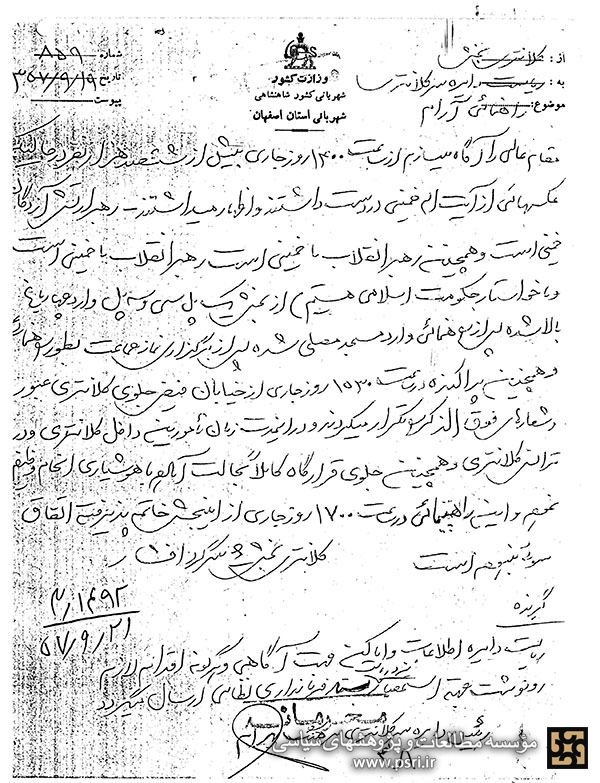 شماره ۸۵۹
تاریخ ۳۵۷/۹/۱۹
پیوست
وزارت کشور
شهربانی کشور شاهنشاهی
شهربانی استان اصفهان
از: کلانتری بخش
به: ریاست دایره سر کلانتری
موضوع: راهنمائی آرام
مقام عالی را آگاه میسازم از ساعت ۱۴۰۰ روز جاری بیش از ششصد هزار نفر در حالیکه
عکسهائی از آیت اله خمینی در دست داشتند و اظهار میداشتند - رهبر ارتش آزادگان
خمینی است و همچنین رهبر انقلاب ما خمینی است رهبر انقلاب با خمینی است
و ما خواستار حکومت اسلامی هستیم) از بخش یک پل سی و سه پل وارد چهارباغ
بالا شده پس از راهنمائی وارد مسجد مصلی شده پس از برگزاری نماز جماعت بطور
و همچنین پراکنده در ساعت ۱۵۳۰ روز جاری از خیابان فیض جلوی کلانتری عبور
و شعارهای فوق الذکر را تکرار میکردند و در این مدت زمان مأمورین داخل کلانتری و در
تراس کلانتری و همچنین جلوی قرارگاه کاملا بحالت آرام با هوشیاری انجام وظیفه
نموده و این راهپیمائی در ساعت ۱۷۰۰ روز جاری از این بخش خاتمه پذیرفته اتفاق
سوئی نبوده است
کلانتری بخش ۶ سرگرد
۳/۱۴۹۲
۵۷/۹/۲۱
گیرنده
ریاست دایره اطلاعات و جهت آگاهی و هرگونه اقدام لازم
رونوشت جهت استحضار فرمانداری نظامی ارسال میگردد
رئیس دایره سر کلانتری سرهنگ
موسسه مطالعات و پژوهشهای سیاسی
www.psri.ir